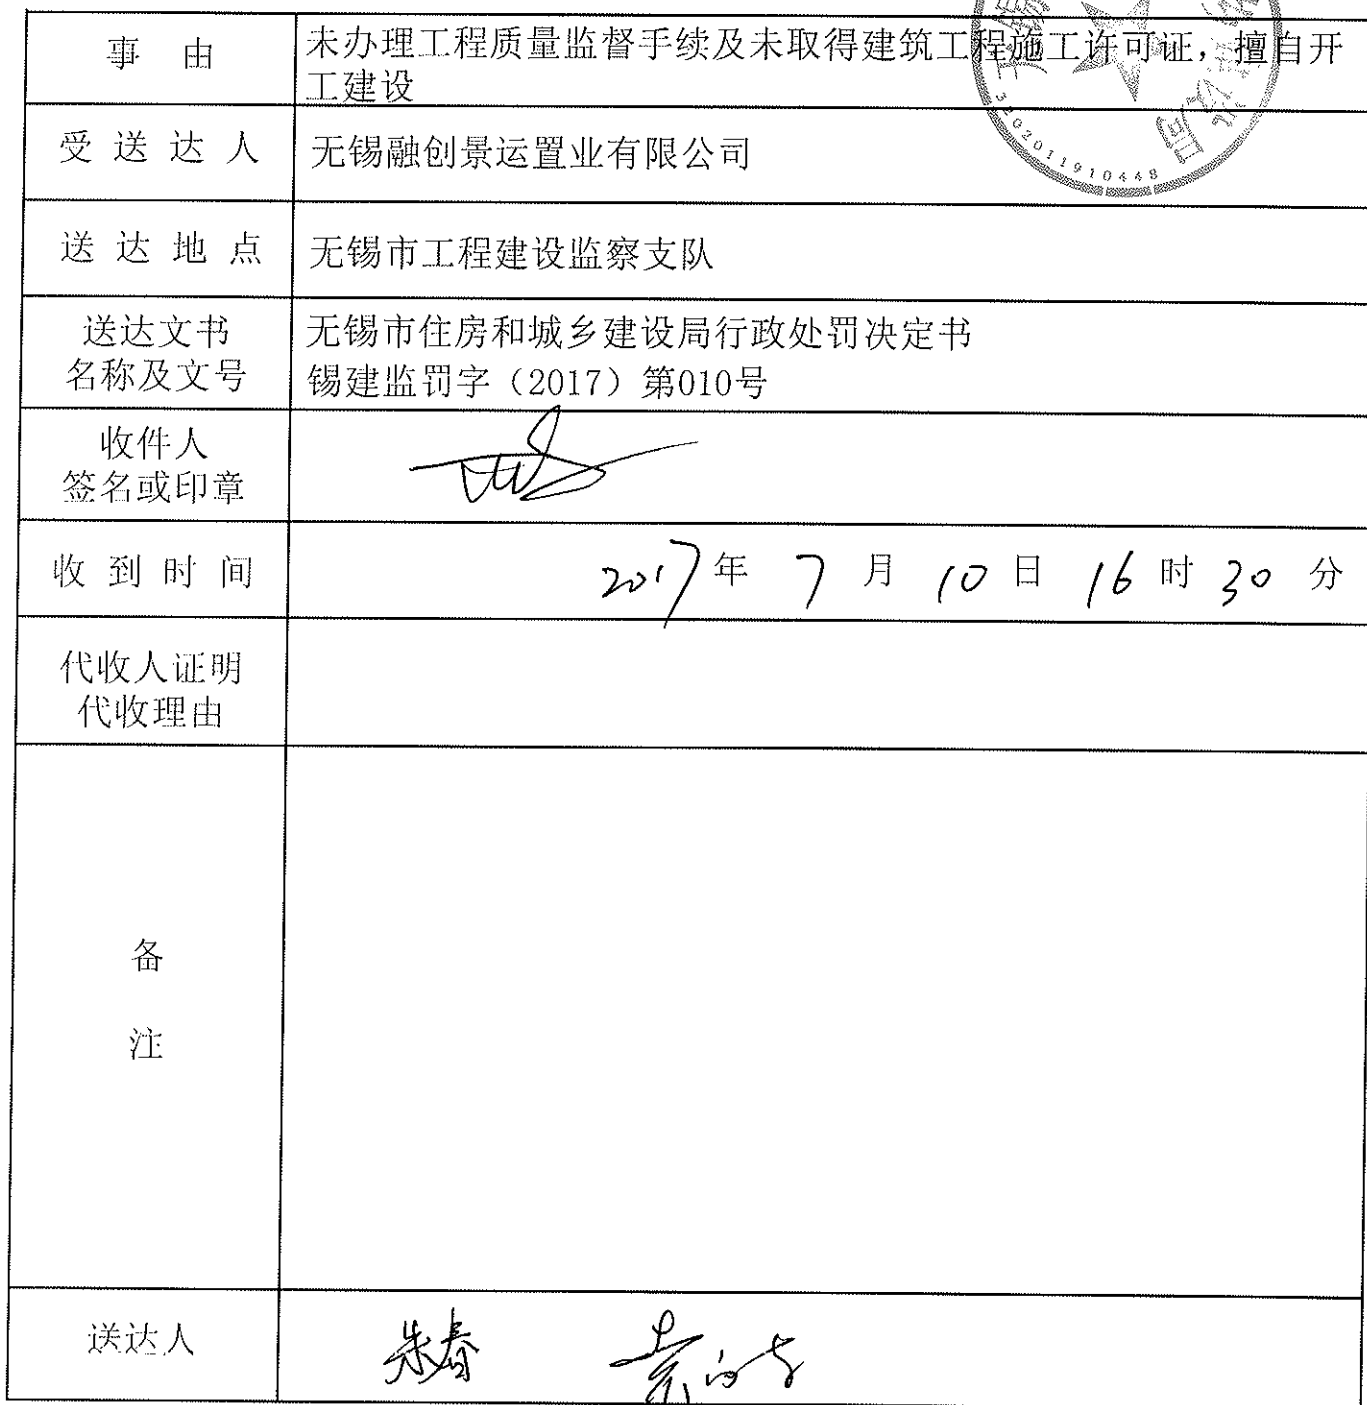 事 由
未办理工程质量监督手续及未取得建筑工程施工许可证，擅自开
工建设
3202011910448
受 送 达 人
无锡融创景运置业有限公司
送 达 地 点
无锡市工程建设监察支队
送达文书
名称及文号
无锡市住房和城乡建设局行政处罚决定书
锡建监罚字（2017）第010号
收件人
签名或印章
收 到 时 间
2017年 7 月 10 日 16 时 30 分
代收人证明
代收理由
备
注
送达人
朱春